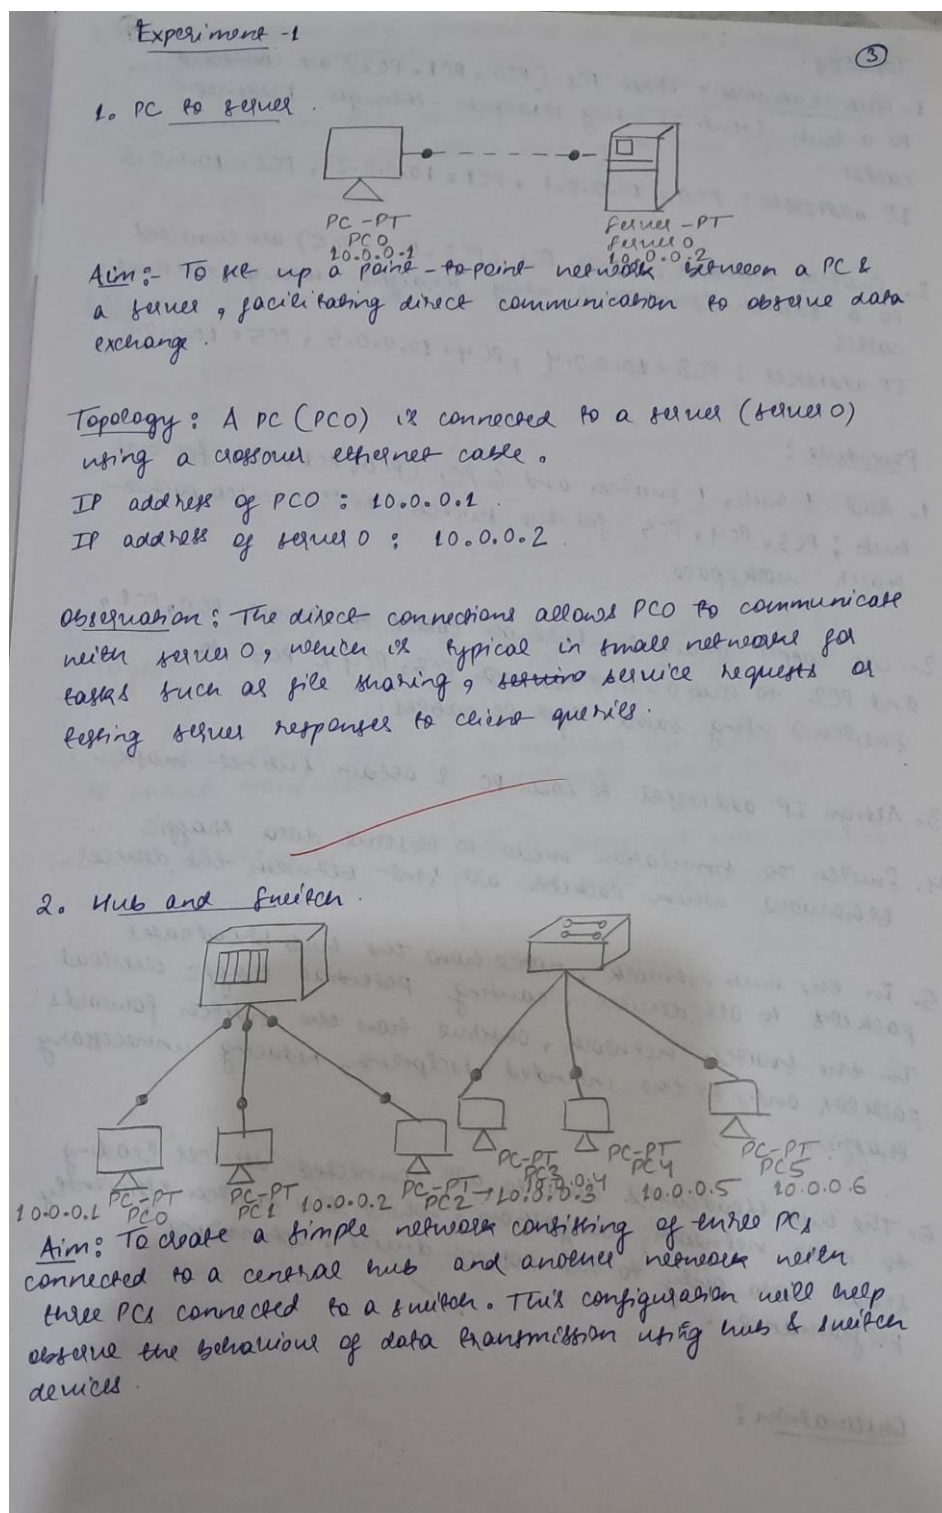 Experiment -1
3
1. PC to server.
PC-PT
PC0
10.0.0.1
Server-PT
Server0
10.0.0.2
Aim:- To set up a point-to-point network between a PC &
a server, facilitating direct communication to observe data
exchange.
Topology: A PC (PC0) is connected to a server (server0)
using a crossover ethernet cable.
IP address of PC0 : 10.0.0.1
IP address of server0 : 10.0.0.2
Observation: The direct connections allows PC0 to communicate
with server0, which is typical in small networks for
tasks such as file sharing, service requests or
testing server responses to client queries.
2. Hub and Switch.
10.0.0.1
PC-PT
PC0
PC-PT
PC1
10.0.0.2
PC-PT
PC2 → 10.0.0.3
PC-PT
PC3
10.0.0.4
PC-PT
PC4
10.0.0.5
PC-PT
PC5
10.0.0.6
Aim: To create a simple network consisting of three PCs
connected to a central hub and another network with
three PCs connected to a switch. This configuration will help
observe the behaviour of data transmission using hub & switch
devices.